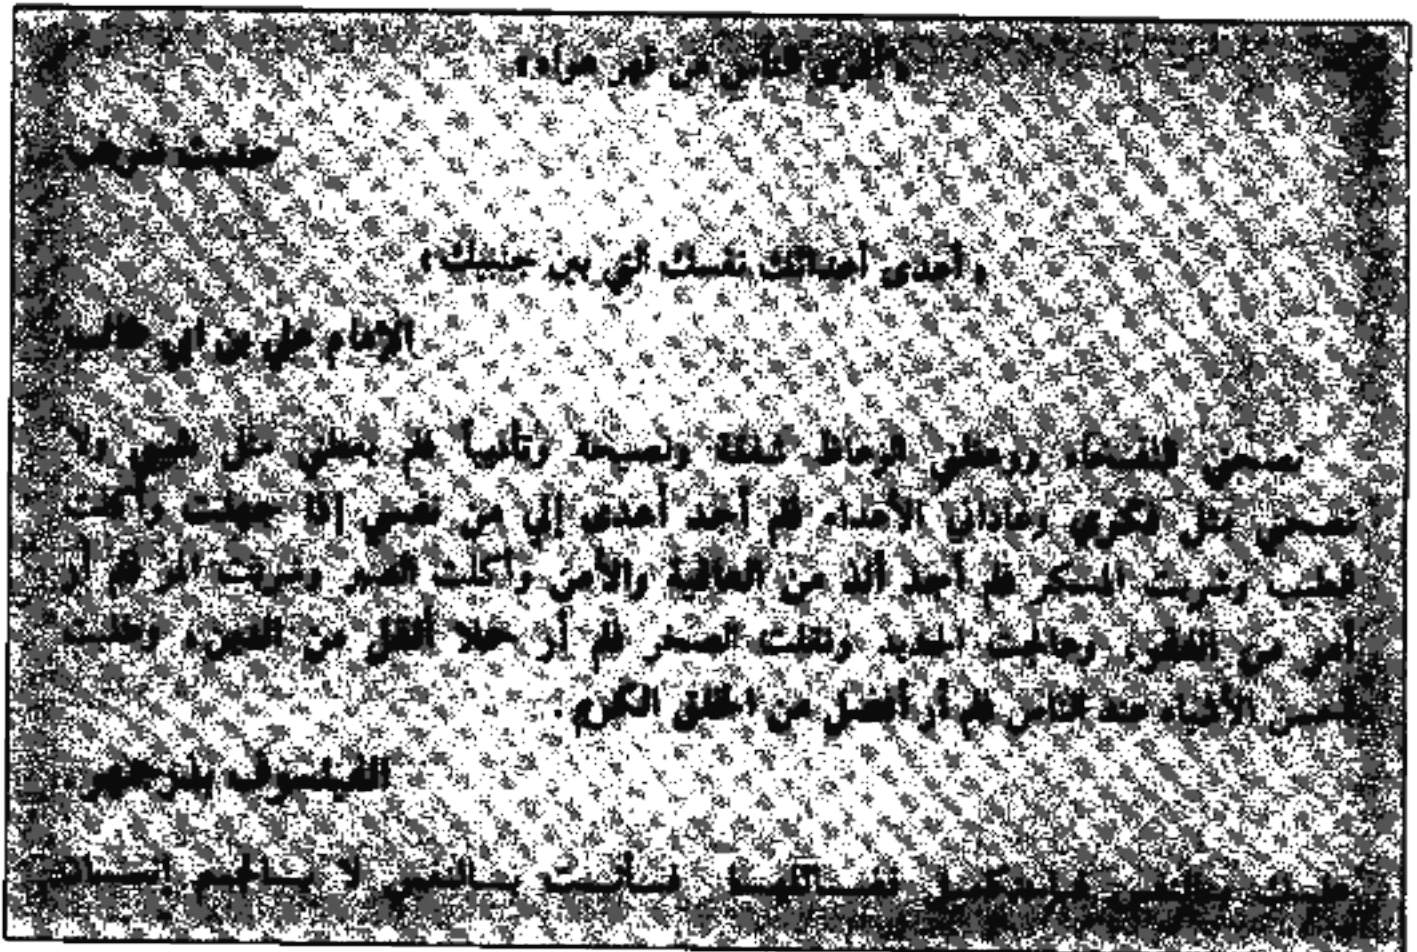 « أقوى الناس من قهر هواه »
حديث شريف
« أعدى أعدائك نفسك التي بين جنبيك »
الإمام علي بن أبي طالب
نصحني النصحاء ووعظني الوعاظ شفقة ونصيحة وتأديباً فلم يعظني مثل شيبي ولا
نصحني مثل فكري وعاداني الأعداء فلم أجد أعدى إلي من نفسي إذا جهلت وأكلت
الطيب وشربت المسكر فلم أجد ألذ من العافية والأمن وأكلت الصبر وشربت المر فلم أر
أمر من الفقر، وعالجت الحديد ونقلت الصخر فلم أر حملا أثقل من الدين، وطلبت
أحسن الأشياء عند الناس فلم أر أفضل من الخلق الكريم.
الفيلسوف بزرجمهر
عليك بالنفس فاستكمل فضائلها فأنت بالنفس لا بالجسم إنسان